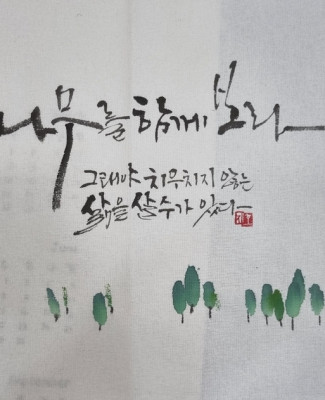 나무를 함께 보라
그래야 치우치지 않는
삶을 살 수가 있다